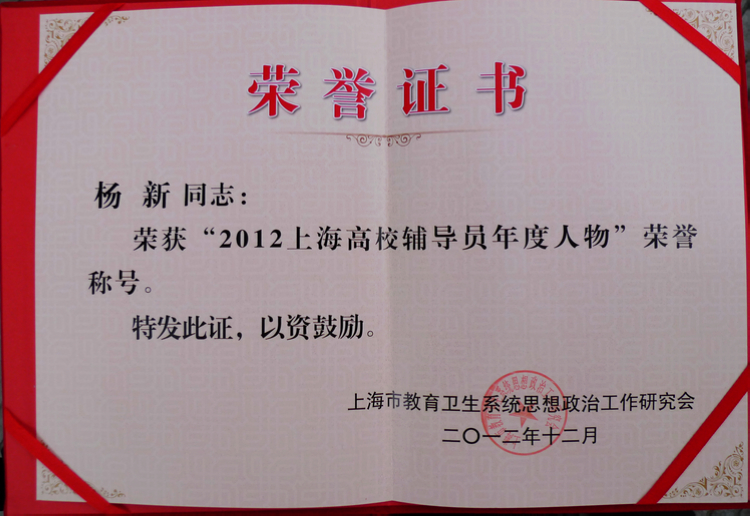 荣誉证书
杨新同志：
荣获“2012上海高校辅导员年度人物”荣誉
称号。
特发此证，以资鼓励。
上海市教育卫生系统思想政治工作研究会
二〇一二年十二月